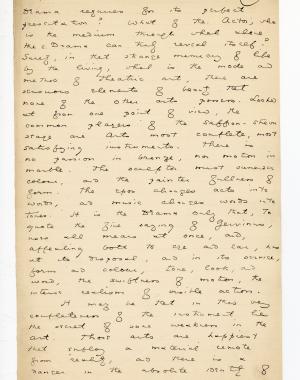 Drama requires for its perfect
presentation? What of the Actor, who
is the medium through which alone
the Drama can truly reveal itself?
Surely, in that strange mimicry of life
by the living, which is the mode and
method of Theatric art, there are
sensuous elements of beauty that
none of the other arts possess. Looked
at from one point of view, the
common players of the saffron-strewn
stage are Art's most complete, most
satisfying instruments. There is
no passion in bronze, nor motion in
marble. The sculptor must surrender
colour, and the painter fullness of
form. The epos changes acts into
words, and music changes words into
tones. It is the Drama only that, to
quote the fine saying of Gervinus,
uses all means at once, and,
appealing both to eye and ear, has
at its disposal, and in its service,
form and colour, tone, look, and
word, the swiftness of motion, the
intense realism of visible action.
It may be that in this very
completeness of the instrument lies
the secret of some weakness in the
art. Those arts are happiest
that employ a material remote
from reality, and there is a
danger in the absolute identity of